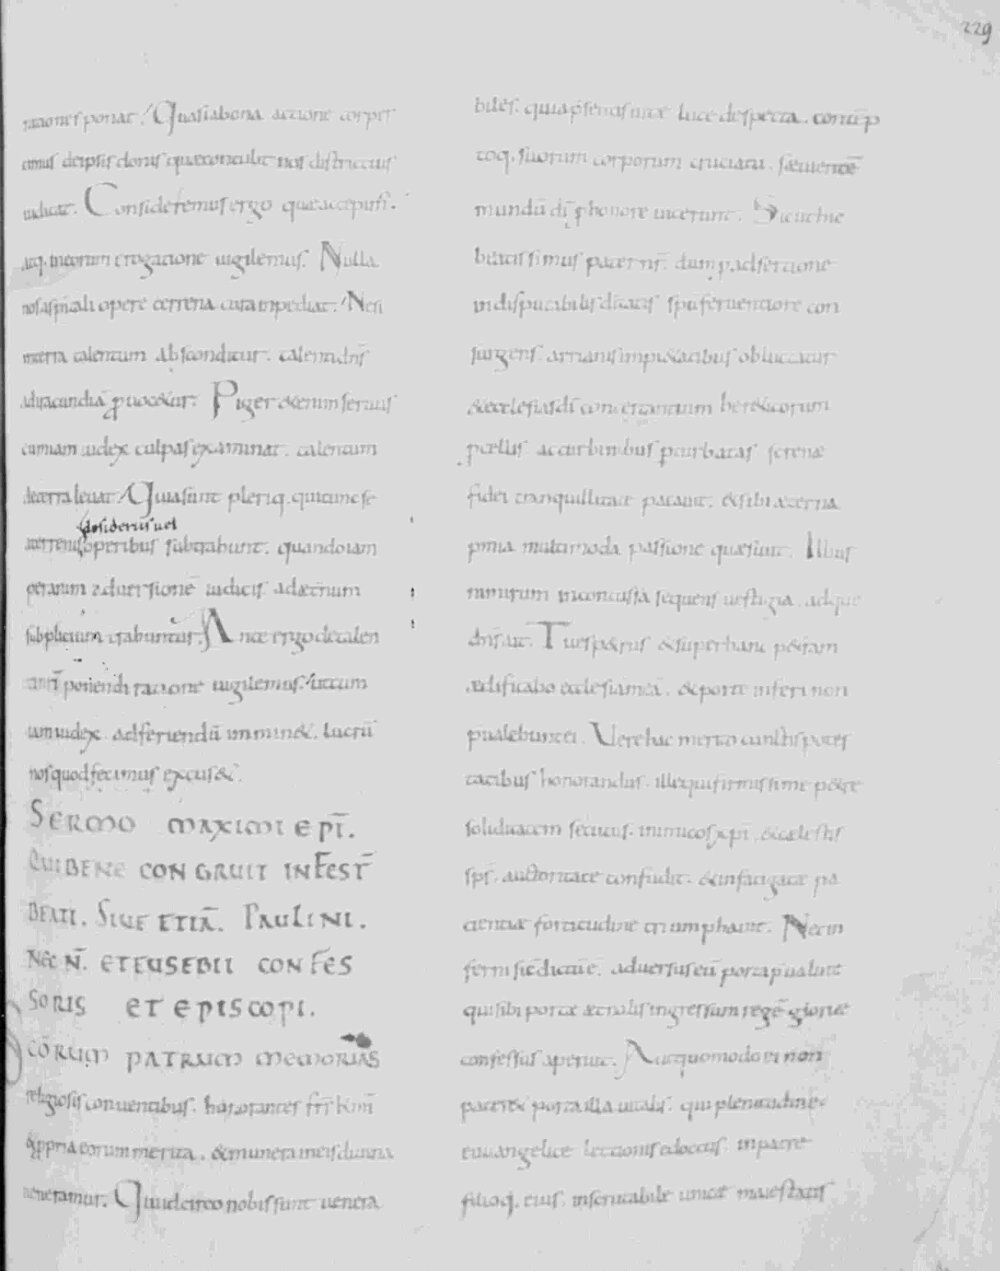 229
rationes ponat. Qua si a bona actione torpes
cimus de ipsis donis quae contulit nos districtius
iudicat. Consideremus ergo quae accepim̄.
atq. in eorum erogatione uigilemus. Nulla
nos a sp̄itali opere terrena cura inpediat. Ne si
in terra talentum absconditur. talenti dn̄s
ad iracundiā ꝓuocetur. Piger etenim seruus
cum iam iudex culpas examinat. talentum
de terra leuat. Quia sunt pleriq. qui tunc se
desideriis uel
a terrenis operibus subtrahunt. quando iam
peraduersionē iudicis ad aeternum
subplicium trahuntur. Ante ergo de talen
ti n̄r̄i ponendi ratione uigilemus. ut cum
iam iudex ad feriendū imminet. lucrū
nos quod fecimus excuset.
SERMO MAXIMI EPĪ.
QUI BENE CONGRUIT IN FEST̄
BEATI. SIUE ETIĀ. PAULINI.
NEC N̄. ET EUSEBII CONFES
SORIS ET EPISCOPI.
CORUM PATRUM MEMORIAS
religiosis conuentibus. honorantes fr̄s kmī
& ppria eorum merita. & munera in eis diuina
ueneramur. Qui idcirco nobis sunt uenera
biles. quia p̄sentis uitae luce despecta. contēp
toq. suorum corporum cruciatu. saeuientē
mundū dī p honore uicerunt. Sicut hic
beatissimus pater nr̄. dum p adsertione
indisputabilis ditatis spū feruentiore con
surgens. arrianis impietatibus obluctatur
& ecclesias dī concertantium hereticorum
pcellis ac turbinibus pturbatas serenae
fidei tranquillitate pacauit. & sibi aeterna
pmia multimoda passione quaesiuit. Illius
nimirum inconcussa sequens uestigia. ad que
dn̄s ait. Tu es petrus & super hanc petram
aedificabo ecclesiā meā. & portae inferi non
pualebunt ei. Vere hic merito cunctis potes
tatibus honorandus. ille qui firmissime petre
soliditatem secutus. inimicos xp̄i. & caelestis
sps. auctoritate confudit. & infatigatae pa
cientiae fortitudine triumphauit. Nec in
ferni sic dictū ē. aduersus eū porta pualuit
qui sibi portae aeternalis ingressum regē gloriae
confessus aperuit. Aut quomodo ei non
pateret porta illa uitalis. qui plenitudine
euuangelice lectionis edoctus in patre
filioq. eius. inscrutabile unitae maiestatis